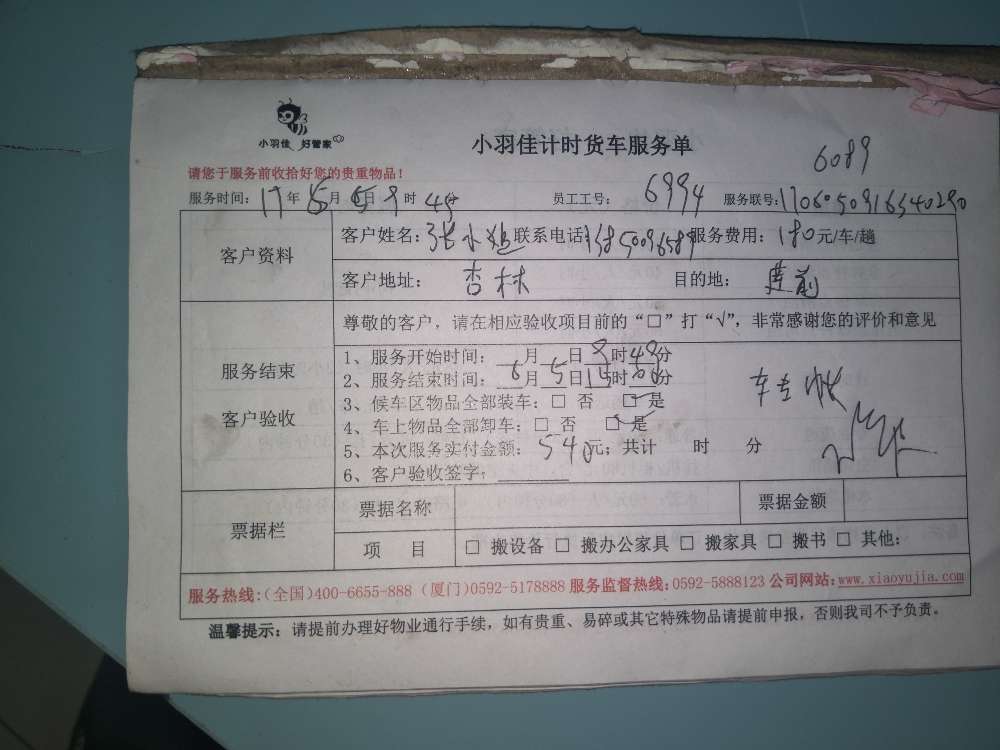 小羽佳 好管家
小羽佳计时货车服务单
6089
请您于服务前收拾好您的贵重物品!
服务时间: 17年 月 5日 9时 49分 员工工号: 6994 服务联号:
客户资料
客户姓名: 张小姐 联系电话: 服务费用: 180元/车/趟
客户地址: 杏林 目的地: 莲前
服务结束
客户验收
尊敬的客户，请在相应验收项目前的“□”打“√”，非常感谢您的评价和意见
1、服务开始时间: 月 日 9时49分
2、服务结束时间: 6月5日 时 分
3、候车区物品全部装车: □ 否 ☑ 是
4、车上物品全部卸车: □ 否 ☑ 是
5、本次服务实付金额: 540元; 共计 时 分
6、客户验收签字:
票据栏
票据名称 票据金额
项 目 □ 搬设备 □ 搬办公家具 □ 搬家具 □ 搬书 □ 其他:
服务热线:(全国)400-6655-888 (厦门)0592-5178888 服务监督热线:0592-5888123 公司网站:www.xiaoyujia.com
温馨提示: 请提前办理好物业通行手续，如有贵重、易碎或其它特殊物品请提前申报，否则我司不予负责。